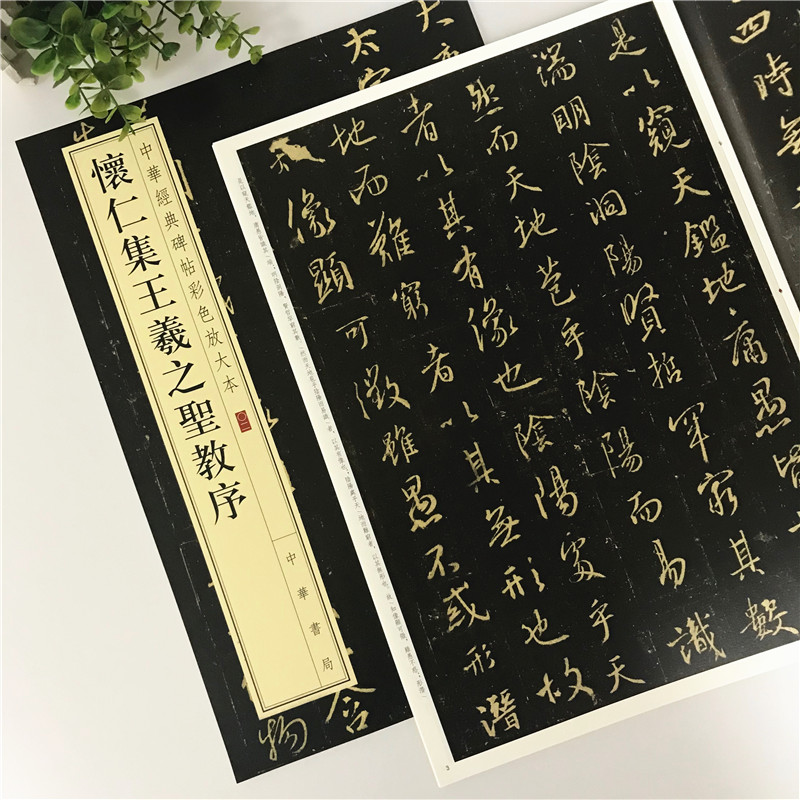 中華經典碑帖彩色放大本
〇二
懷仁集王羲之聖教序
中華書局
太
含
物
四時無
是以窺天鑑地庸愚皆
端明陰洞陽賢哲罕窮其數
然而天地苞乎陰陽而易識
者以其有像也陰陽處乎天
地而難窮者以其無形也故
像顯可徵雖愚不惑形潛
3